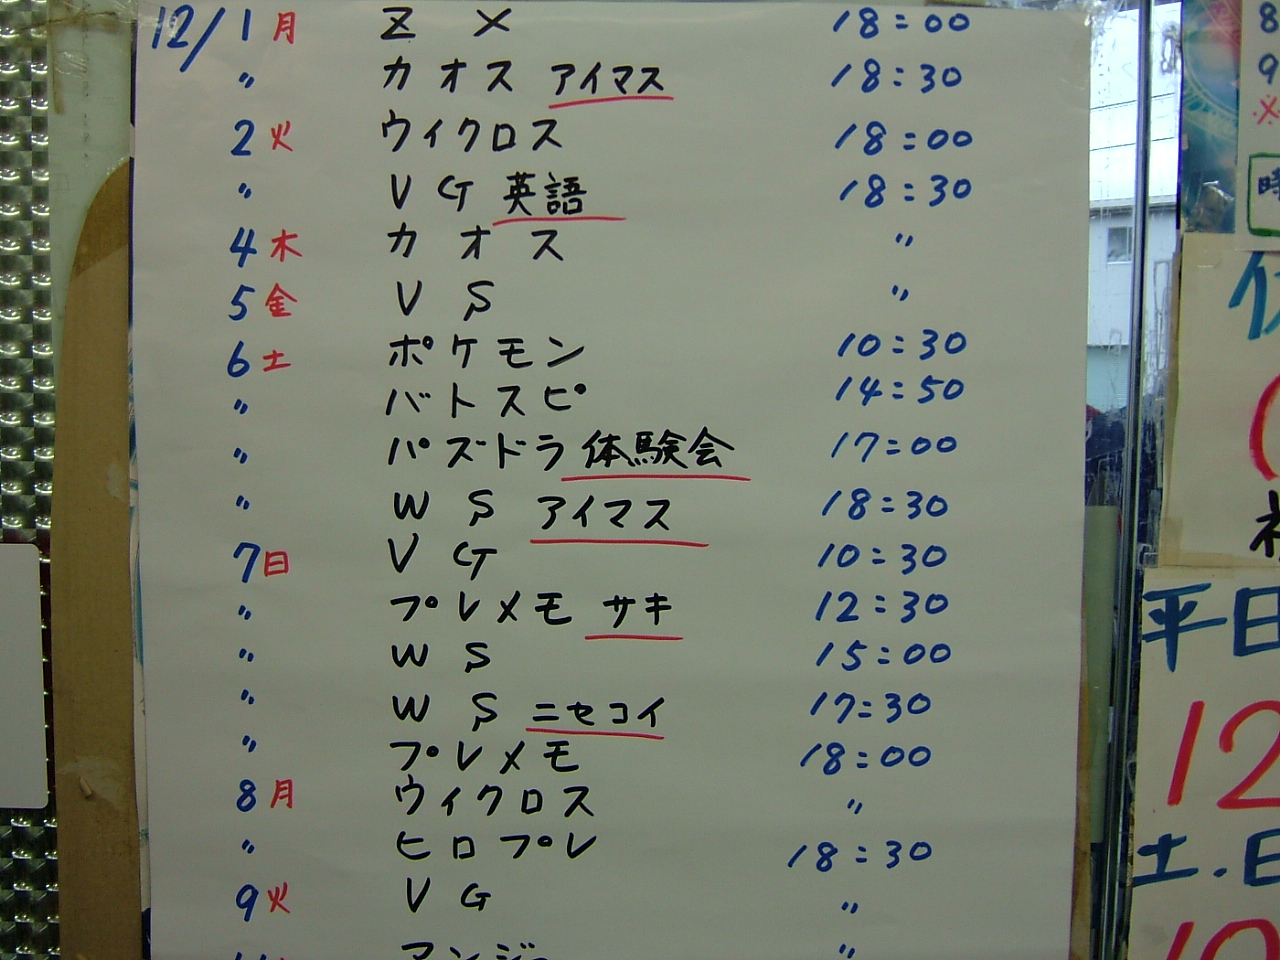 12/1 月 Z X 18:00
〃 カオス アイマス 18:30
2 火 ウィクロス 18:00
〃 VG 英語 18:30
4 木 カオス 〃
5 金 VS 〃
6 土 ポケモン 10:30
〃 バトスピ 14:50
〃 パズドラ 体験会 17:00
〃 WS アイマス 18:30
7 日 VG 10:30
〃 プレメモ サキ 12:30
〃 WS 15:00
〃 WS ニセコイ 17:30
〃 プレメモ 18:00
8 月 ウィクロス 〃
〃 ヒロプレ 18:30
9 火 VG 〃
〃
8
9
※
時
平日
12
土.日